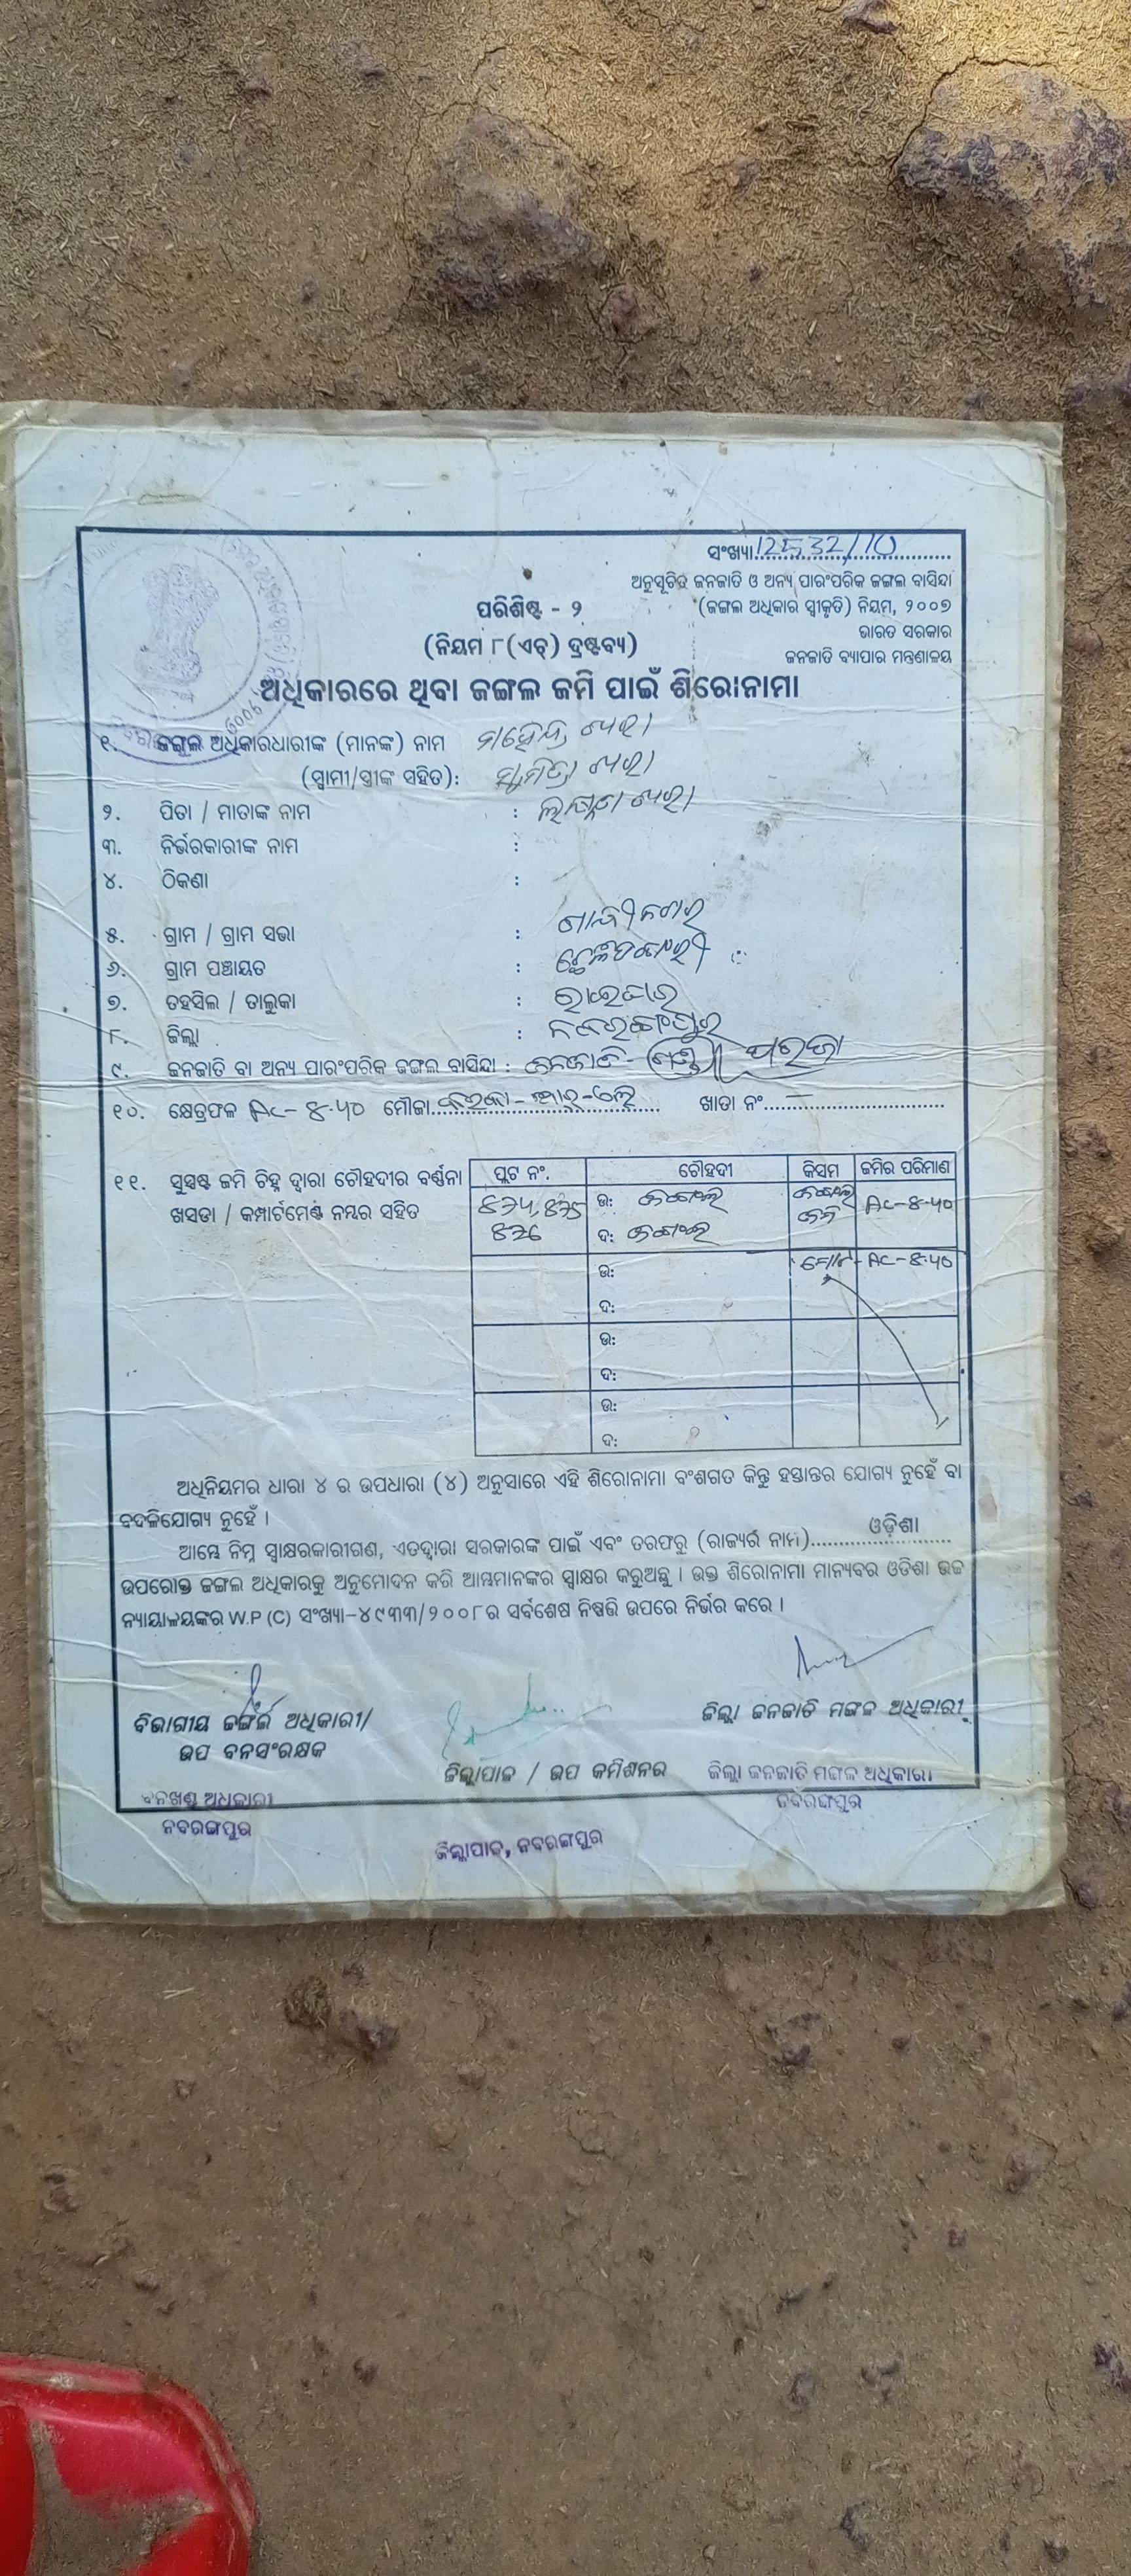 ସଂଖ୍ୟା 12532/10
ଅନୁସୂଚିତ ଜନଜାତି ଓ ଅନ୍ୟ ପାରଂପରିକ ଜଙ୍ଗଲ ବାସିନ୍ଦା
(ଜଙ୍ଗଲ ଅଧିକାର ସ୍ୱୀକୃତି) ନିୟମ, ୨୦୦୭
ଭାରତ ସରକାର
ଜନଜାତି ବ୍ୟାପାର ମନ୍ତ୍ରଣାଳୟ
ପରିଶିଷ୍ଟ - ୨
(ନିୟମ ୮(ଏଚ୍) ଦ୍ରଷ୍ଟବ୍ୟ)
ଅଧିକାରରେ ଥିବା ଜଙ୍ଗଲ ଜମି ପାଇଁ ଶିରୋନାମା
୧. ଜଙ୍ଗଲ ଅଧିକାରଧାରୀଙ୍କ (ମାନଙ୍କ) ନାମ
(ସ୍ୱାମୀ/ସ୍ତ୍ରୀଙ୍କ ସହିତ):
୨. ପିତା / ମାତାଙ୍କ ନାମ :
୩. ନିର୍ଭରକାରୀଙ୍କ ନାମ :
୪. ଠିକଣା :
୫. ଗ୍ରାମ / ଗ୍ରାମ ସଭା : ଗାନ୍ଧୀନଗର
୬. ଗ୍ରାମ ପଞ୍ଚାୟତ :
୭. ତହସିଲ / ତାଲୁକା : ରାଇଘର
୮. ଜିଲ୍ଲା : ନବରଙ୍ଗପୁର
୯. ଜନଜାତି ବା ଅନ୍ୟ ପାରଂପରିକ ଜଙ୍ଗଲ ବାସିନ୍ଦା : ଜନଜାତି - ପରଜା
୧୦. କ୍ଷେତ୍ରଫଳ Ac- ୫.୫୦ ମୌଜା ଖାତା ନଂ. —
୧୧. ସୁସ୍ପଷ୍ଟ ଜମି ଚିହ୍ନ ଦ୍ୱାରା ଚୌହଦୀର ବର୍ଣ୍ଣନା
ଖସଡା / କମ୍ପାର୍ଟମେଣ୍ଟ ନମ୍ବର ସହିତ
ପ୍ଲଟ ନଂ. ଚୌହଦୀ କିସମ ଜମିର ପରିମାଣ
ଉ: ଜଙ୍ଗଲ ଜଙ୍ଗଲ Ac-୫.୫୦
ଦ: ଜଙ୍ଗଲ ଜମି
ଉ: ମୋଟ- Ac-୫.୫୦
ଦ:
ଉ:
ଦ:
ଉ:
ଦ:
ଅଧିନିୟମର ଧାରା ୪ ର ଉପଧାରା (୪) ଅନୁସାରେ ଏହି ଶିରୋନାମା ବଂଶଗତ କିନ୍ତୁ ହସ୍ତାନ୍ତର ଯୋଗ୍ୟ ନୁହେଁ ବା
ବଦଳିଯୋଗ୍ୟ ନୁହେଁ ।
ଆମ୍ଭେ ନିମ୍ନ ସ୍ୱାକ୍ଷରକାରୀଗଣ, ଏତଦ୍ଦ୍ୱାରା ସରକାରଙ୍କ ପାଇଁ ଏବଂ ତରଫରୁ (ରାଜ୍ୟର ନାମ) ଓଡ଼ିଶା
ଉପରୋକ୍ତ ଜଙ୍ଗଲ ଅଧିକାରକୁ ଅନୁମୋଦନ କରି ଆମ୍ଭମାନଙ୍କର ସ୍ୱାକ୍ଷର କରୁଅଛୁ । ଉକ୍ତ ଶିରୋନାମା ମାନ୍ୟବର ଓଡିଶା ଉଚ୍ଚ
ନ୍ୟାୟାଳୟଙ୍କର W.P (C) ସଂଖ୍ୟା-୪୯୩୩/୨୦୦୮ର ସର୍ବଶେଷ ନିଷ୍ପତ୍ତି ଉପରେ ନିର୍ଭର କରେ ।
ବିଭାଗୀୟ ଜଙ୍ଗଲ ଅଧିକାରୀ/
ଉପ ବନସଂରକ୍ଷକ
ଜିଲ୍ଲାପାଳ / ଉପ କମିଶନର
ଜିଲ୍ଲା ଜନଜାତି ମଙ୍ଗଳ ଅଧିକାରୀ
ବନଖଣ୍ଡ ଅଧିକାରୀ
ନବରଙ୍ଗପୁର
ଜିଲ୍ଲାପାଳ, ନବରଙ୍ଗପୁର
ଜିଲ୍ଲା ଜନଜାତି ମଙ୍ଗଳ ଅଧିକାରୀ
ନବରଙ୍ଗପୁର